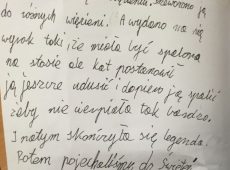 skierowano ją
do różnych więzieni. A wydano na nią
wyrok taki, że miała być spalona
na stosie ale kat postanowił
ją jeszcze udusić i dopiero ją spalić
żeby nie cierpiała tak bardzo.
I na tym skończyła się legenda.
Potem pojechaliśmy do Świętej